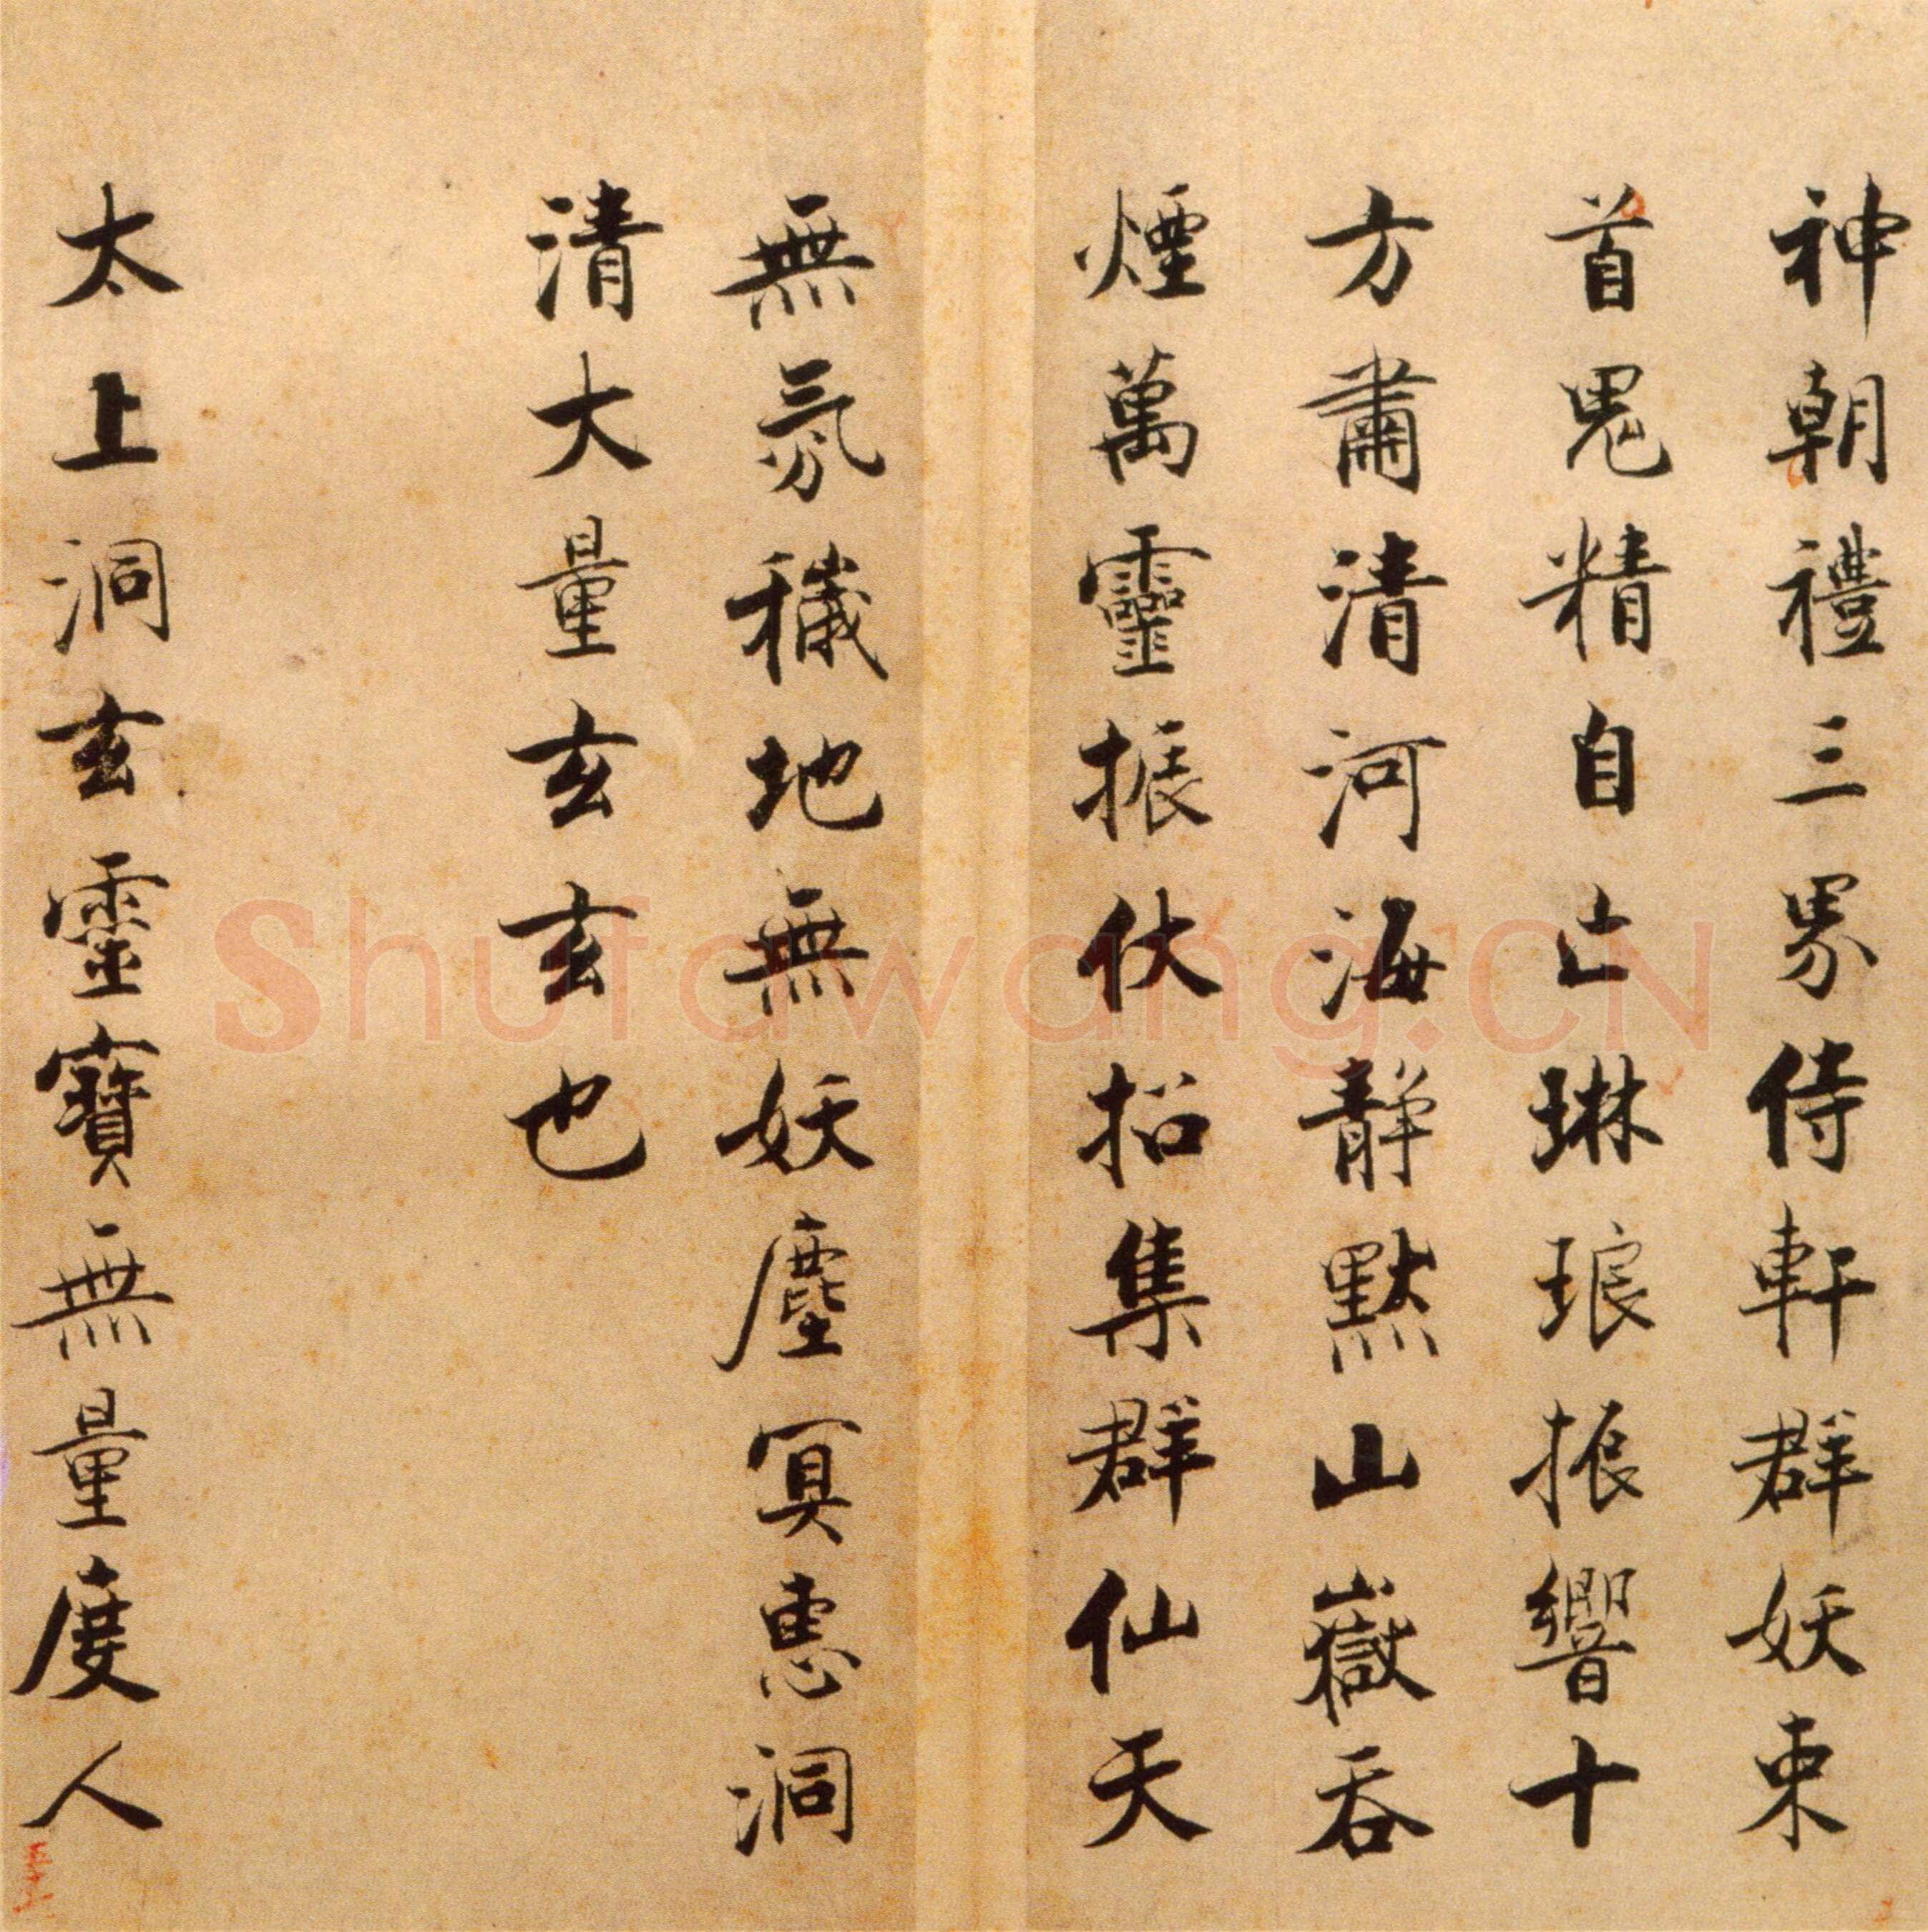 神朝禮三界侍軒群妖束
首鬼精自亡琳琅振響十
方肅清河海靜默山嶽吞
煙萬靈振伏招集群仙天
無氛穢地無妖塵冥惠洞
清大量玄玄也
太上洞玄靈寶無量度人
Shufawang.CN